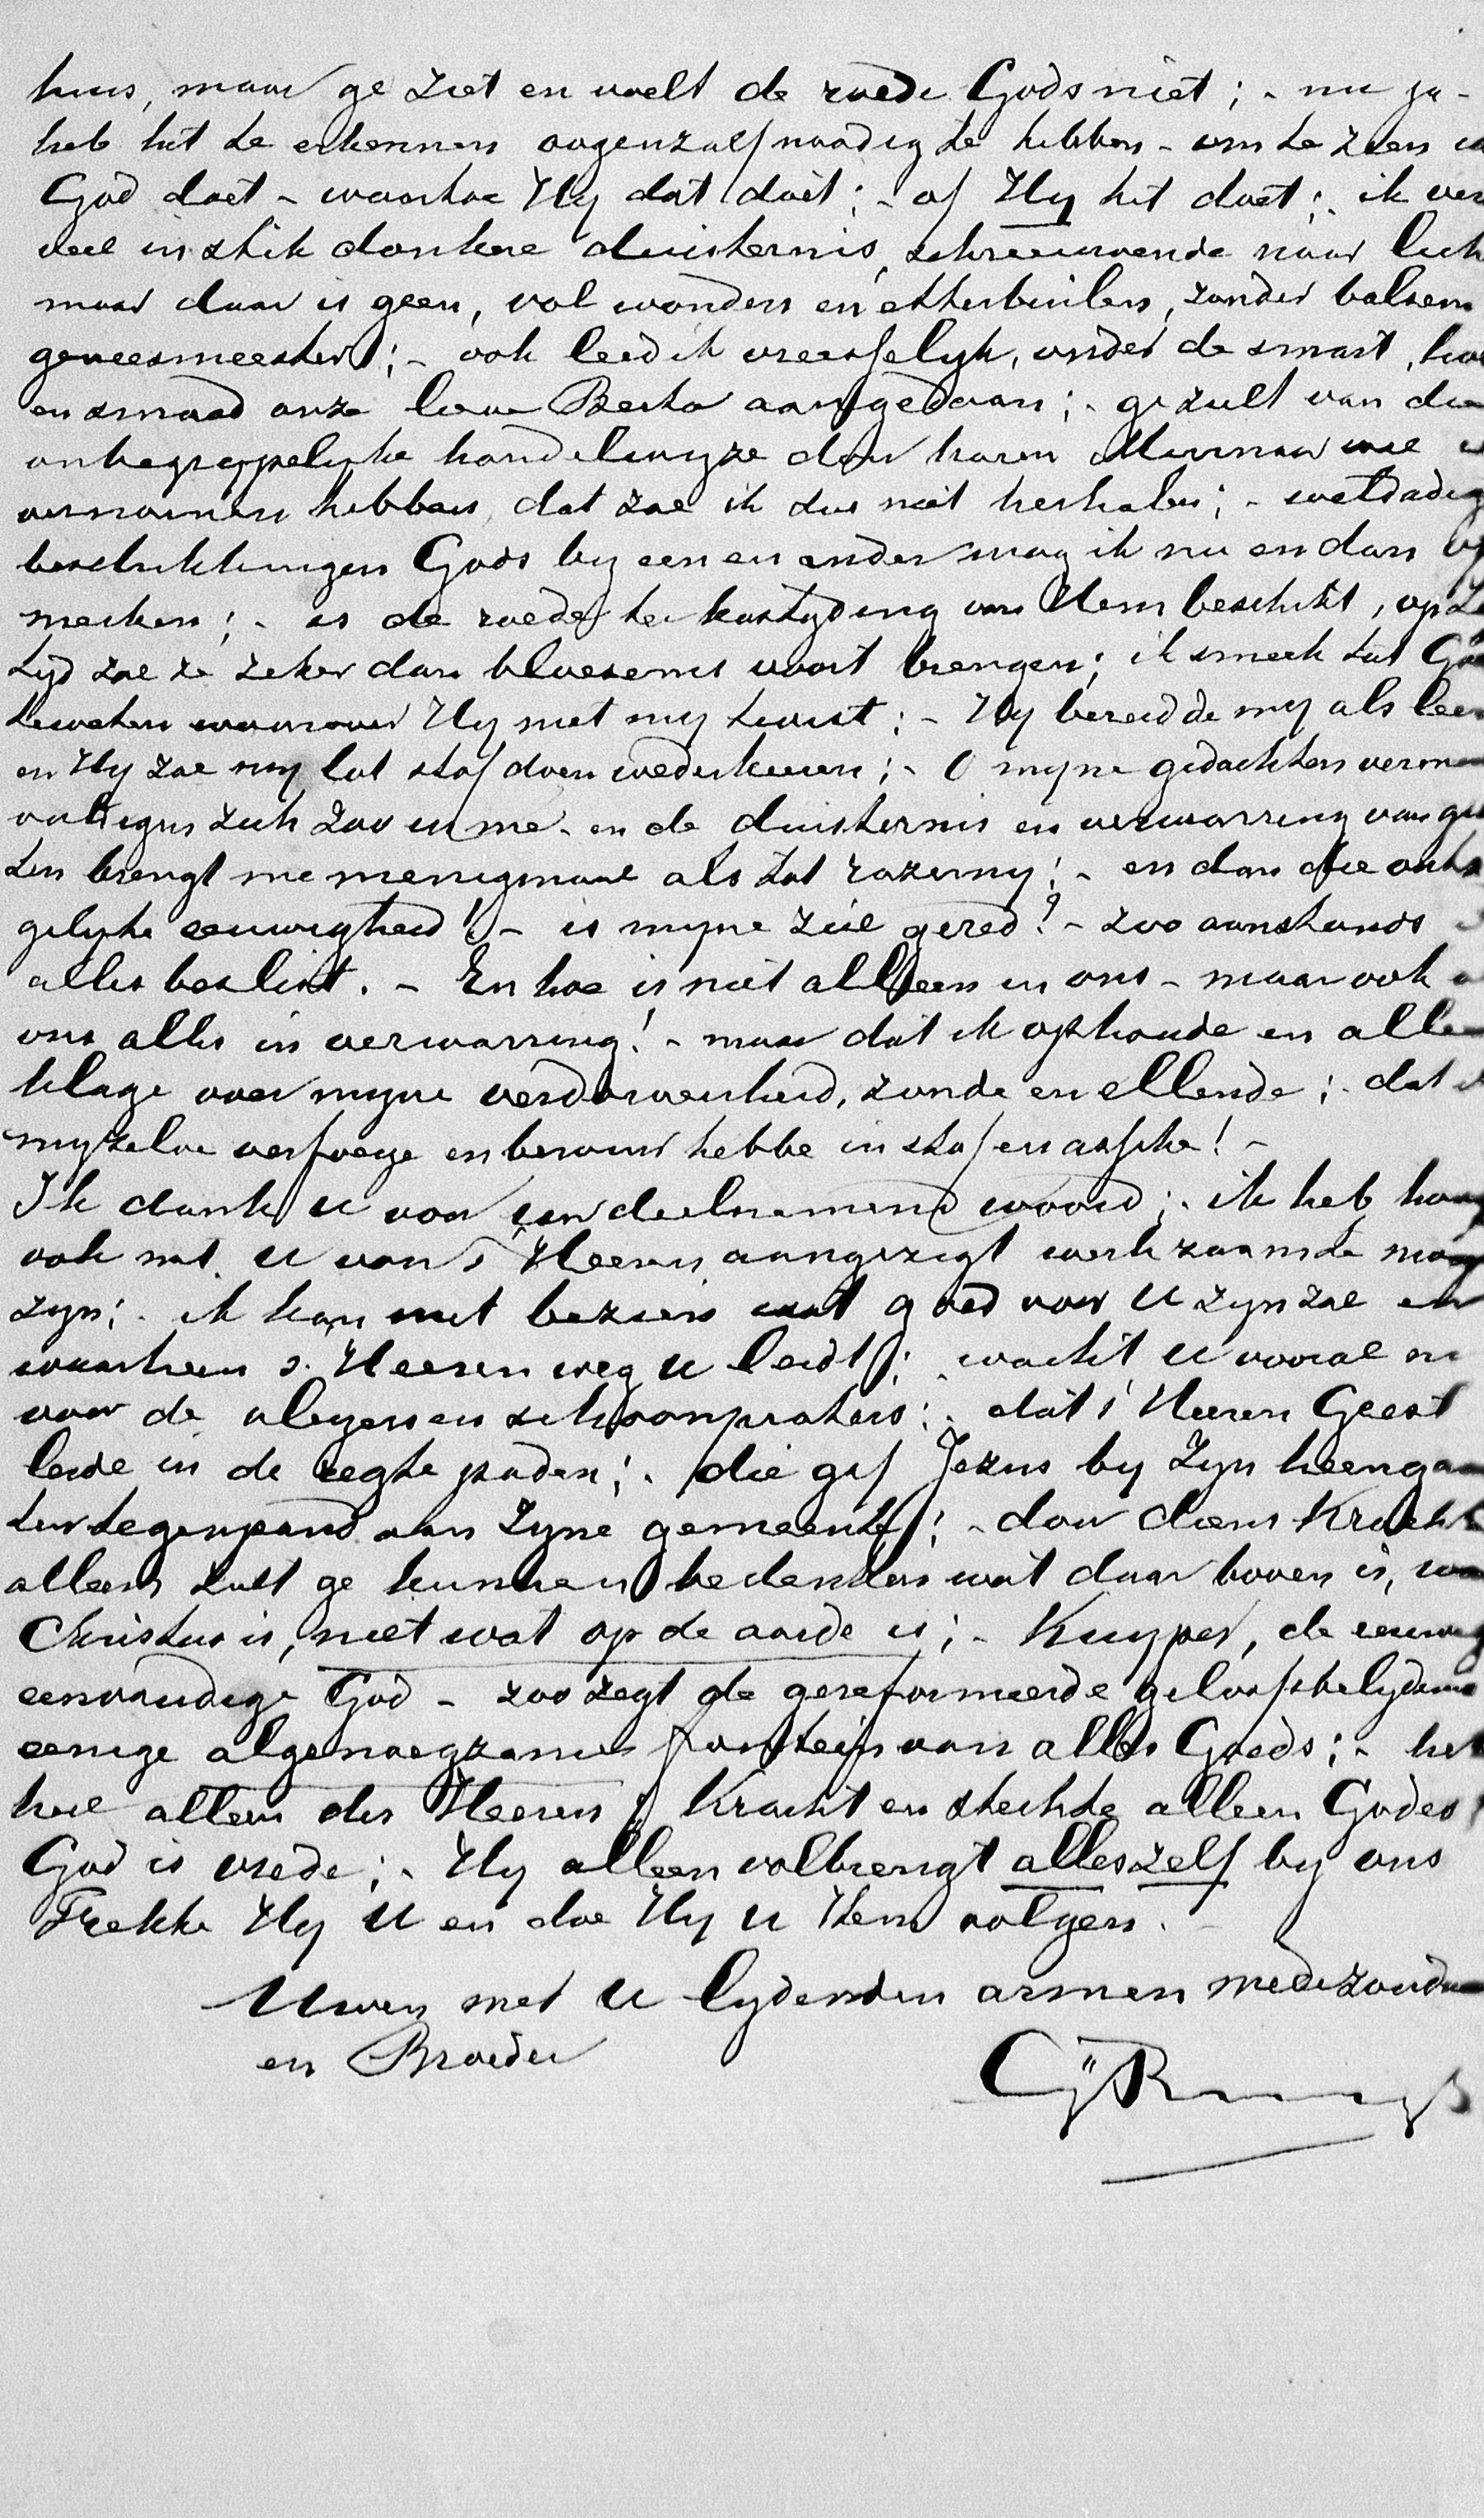 huis, maar ge ziet en voelt de roede Gods niet; - nu ja -
heb het te erkennen oogenzalf noodig te hebben - om te zien
God doet - waartoe Hy dat doet; - of Hy het doet; ik
veel in stik donkere duisternis, schreeuwende naar
maar daar is geen, vol wonden en etterbuilen, zonder balsem
geneesmeester; - ook leed ik vreesselyk, onder de smart,
en smaad onze lieve Berta aangedaan; - ge zult van die
onbegrypelyke handelwyze door haren wel
vernomen hebben, dat zal ik dus niet herhalen; - weldadig
beschikkingen Gods by een en ander mag ik nu en dan
merken; - is de roede ter kastyding van Hem beschikt, op
tyd zal ze zeker dan bloesems voort brengen; ik smeek tot God
te weten waarover Hy met my twist; - Hy bereidde my als leem
en Hy zal my tot stof doen wederkeeren; - O myne gedachten
zich zoo in me - en de duisternis en verwarring van
brengt me menigmaal als tot razerny! - en dan die
gelyke eeuwigheid! - is myne ziel gered? - zoo aanstonds
alles beslist. - En hoe is niet alleen in ons - maar ook
ons alles in verwarring! - maar dat ik ophoude en alleen
klage over myne verdorvenheid, zonde en ellende; - dat
myzelve verfoeye en berouw hebbe in stof en assche! -
Ik dank U voor uw deelnemend woord; - ik heb
ook met U van 's Heeren aangezigt werkzaam te
zyn; - ik kan niet bezien wat goed voor U zyn zal en
waarheen 's Heeren weg U leidt; - wacht U vooral
voor de vleyers en schoonpraters; - dat 's Heeren Geest
leide in de regte paden; - die gaf Jezus by Zyn
ten tegenpand aan Zyne gemeente; - door diens Kracht
alleen zult ge kunnen bedenken wat daar boven is,
Christus is, niet wat op de aarde is; - Kuyper, de
eenvoudige God - zoo zegt de gereformeerde
eenige algenoegzame fontein van alles Goeds; -
heil alleen des Heeren; Kracht en sterkte alleen Godes
God is vrede; - Hy alleen volbrengt alles zelf by ons
Trekke Hy U en doe Hy U Hem volgen. -
Uwen met U lydenden armen
en Broeder